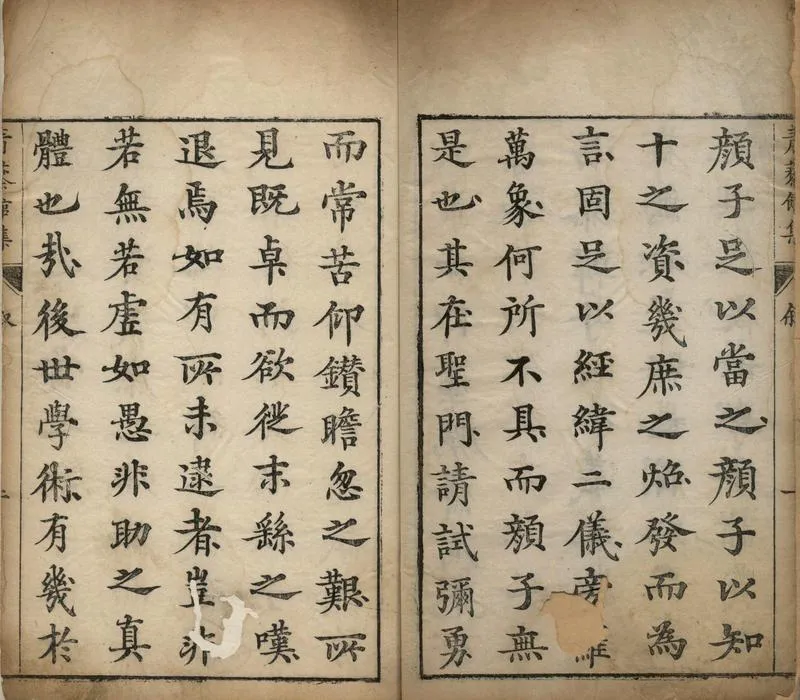 青藜館集
敘
一
顔子足以當之顔子以知
十之資幾庶之焰發而為
言固足以經緯二儀旁
萬象何所不具而顔子無
是也其在聖門請試彌勇
而常苦仰鑽瞻忽之艱所
見既卓而欲從末繇之嘆
退焉如有所未逮者豈非
若無若虛如愚非助之真
體也哉後世學術有幾於